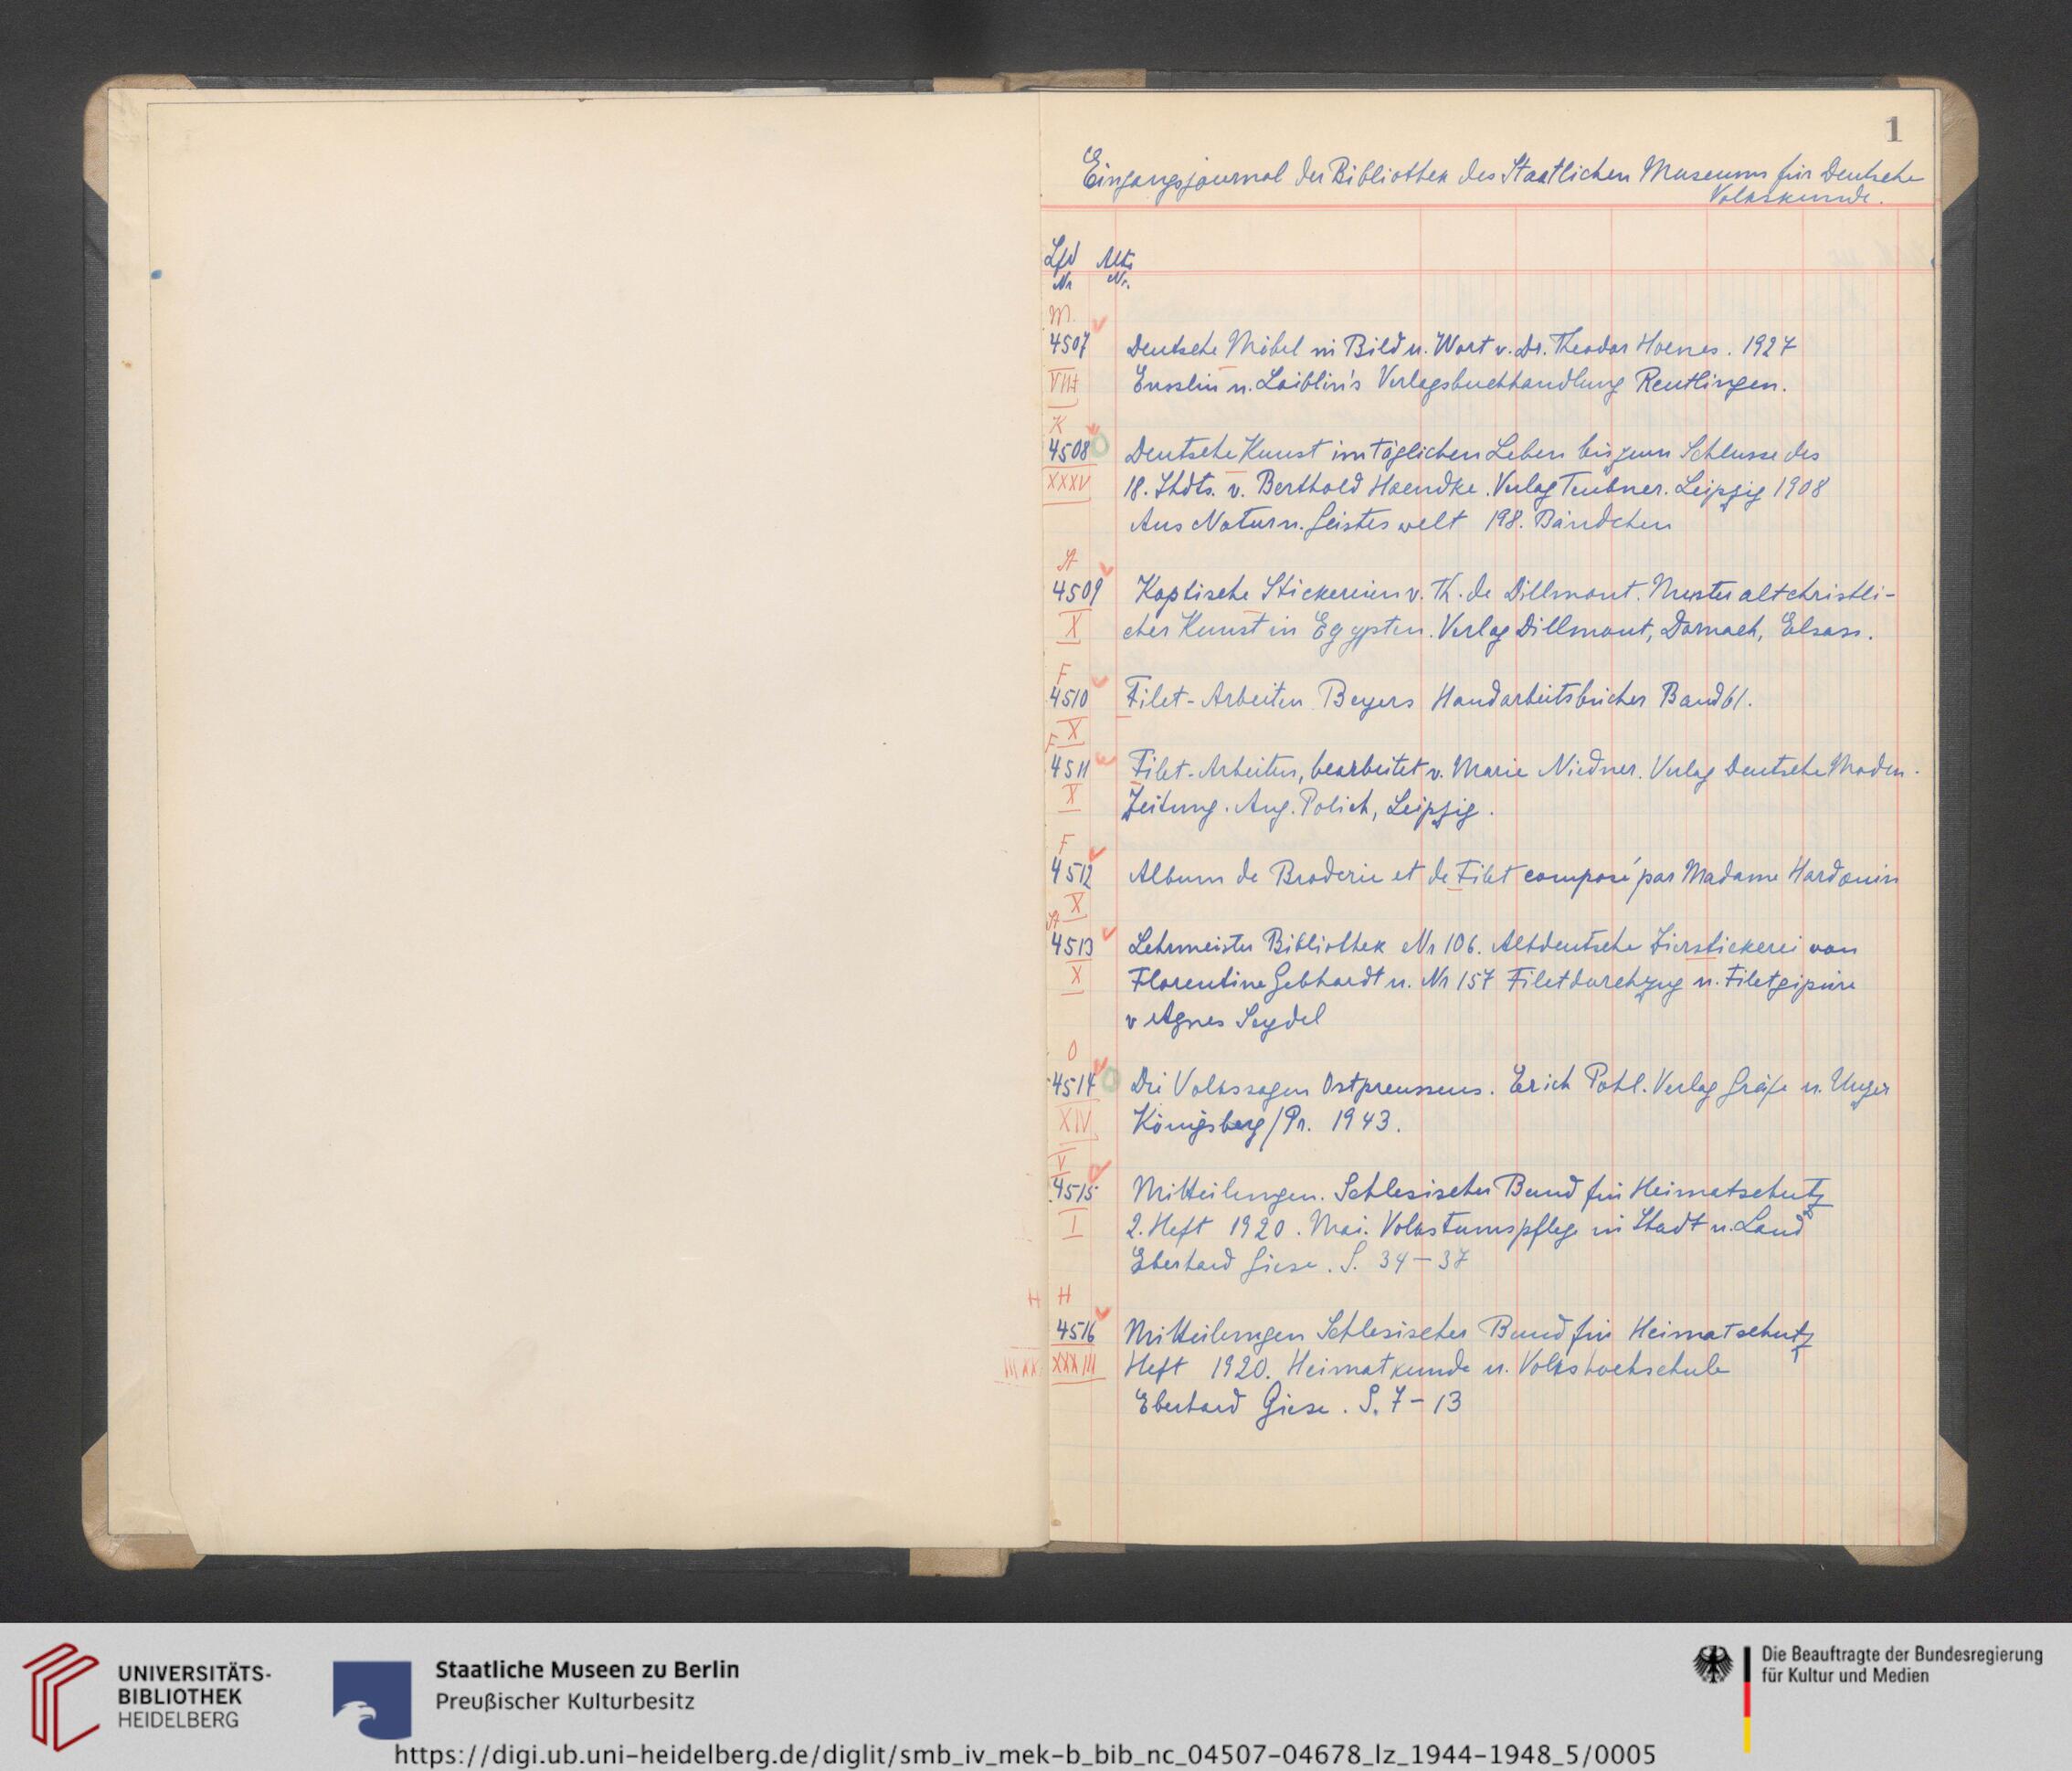 1
Eingangsjournal der Bibliothek des Staatlichen Museums für Deutsche
Volkskunde.
Lfd Alte
Nr Nr.
M.
4507 Deutsche Möbel in Bild u. Wort v. Dr. Theodor Hoenes. 1927
VIII Ensslin u. Laiblin's Verlagsbuchhandlung Reutlingen.
K
4508 Deutsche Kunst im täglichen Leben bis zum Schlusse des
XXXV 18. Jhdts. v. Berthold Haendke. Verlag Teubner. Leipzig 1908
Aus Natur u. Geisteswelt 198. Bändchen
St
4509 Koptische Stickereien v. Th. de Dillmont. Muster altchristli-
X cher Kunst in Egypten. Verlag Dillmont, Dornach, Elsass.
F
4510 Filet-Arbeiten Beyers Handarbeitsbücher Band 61.
X
F
4511 Filet-Arbeiten, bearbeitet v. Marie Niedner. Verlag Deutsche Moden-
X Zeitung. Aug. Polich, Leipzig.
F
4512 Album de Broderie et de Filet composé par Madame Hardouin
X
St
4513 Lehrmeister Bibliothek Nr 106. Altdeutsche Zierstickerei von
X Florentine Gebhardt u. Nr 157 Filetdurchzug u. Filetgipüre
v Agnes Seydel
O
4514 Die Volkssagen Ostpreussens. Erich Pohl. Verlag Gräfe u. Unzer
XIV Königsberg/Pr. 1943.
V
4515 Mitteilungen. Schlesischer Bund für Heimatschutz
I 2. Heft 1920. Mai. Volkstumspflege in Stadt u. Land
Eberhard Giese. S. 34-37
H H
4516 Mitteilungen Schlesischer Bund für Heimatschutz
XXXIII Heft 1920. Heimatkunde u. Volkshochschule
Eberhard Giese. S. 7-13
UNIVERSITÄTS-
BIBLIOTHEK
HEIDELBERG
Staatliche Museen zu Berlin
Preußischer Kulturbesitz
Die Beauftragte der Bundesregierung
für Kultur und Medien
https://digi.ub.uni-heidelberg.de/diglit/smb_iv_mek-b_bib_nc_04507-04678_lz_1944-1948_5/0005